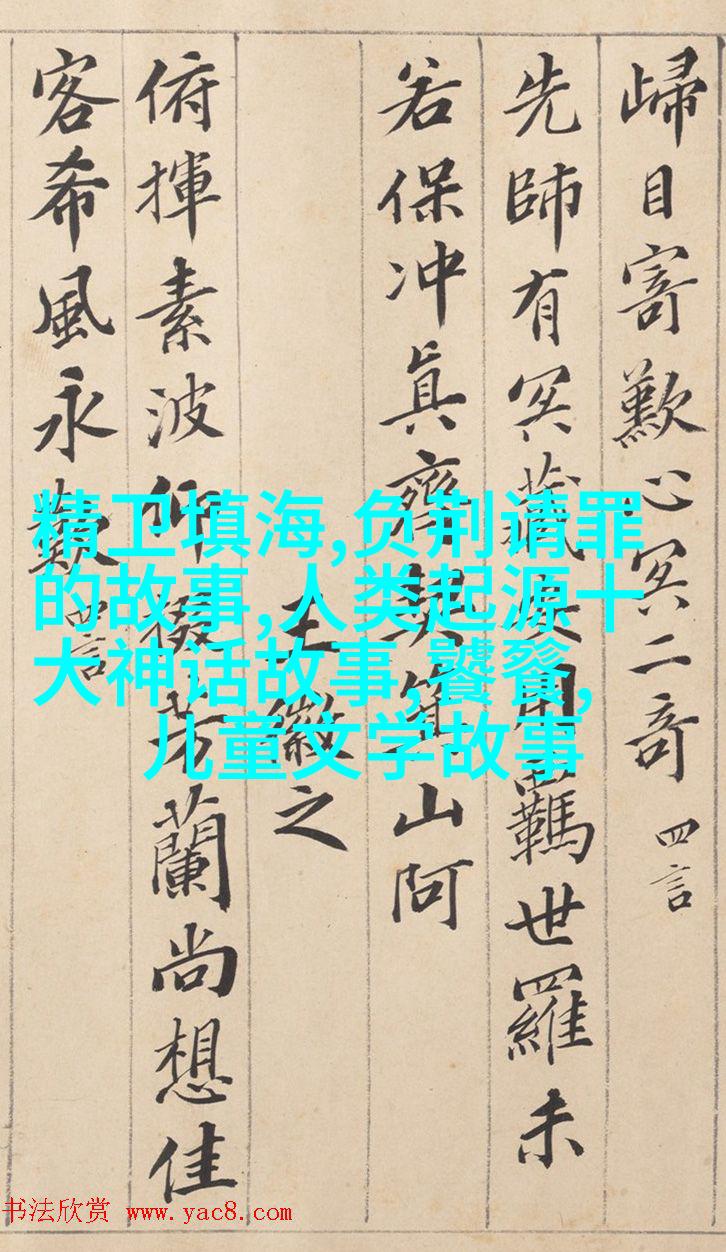 歸目寄歎心冥二奇 四言
先師有冥藏安用羈世羅未
若保冲真齊契箕山阿
王徽之
俯揮素波仰掇芳蘭尚想佳
客希風永歎 四言
精卫填海,负荆请罪
的故事,人类起源十
大神话故事,饕餮,
儿童文学故事
书法欣赏 www.yac8.com